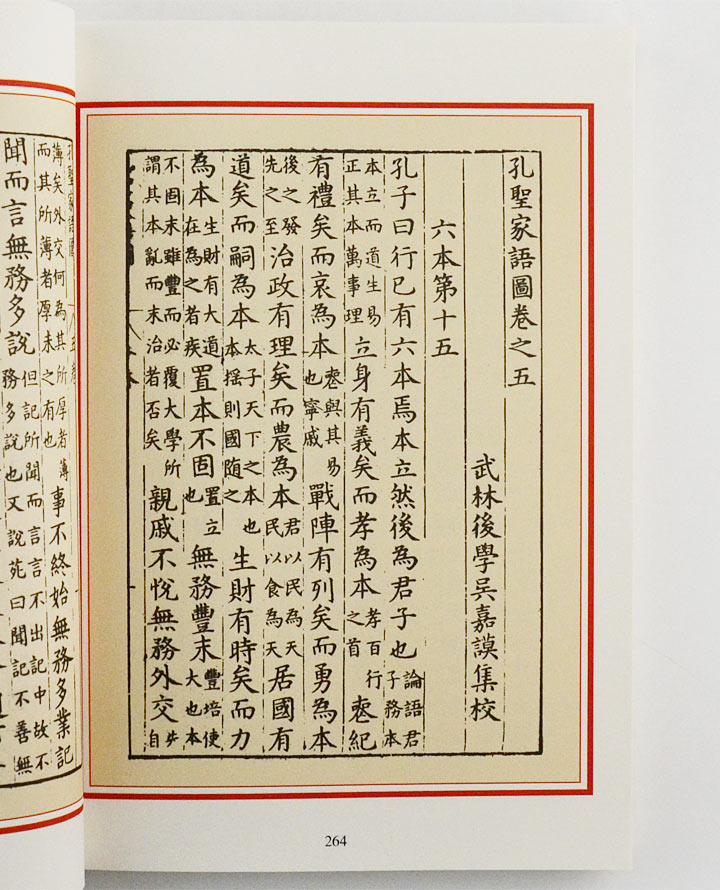 孔聖家語圖卷之五
武林後學吳嘉謨集校
六本第十五
孔子曰行已有六本焉本立然後為君子也論語君子務本
本立而道生易正其本萬事理立身有義矣而孝為本孝百行之首喪紀
有禮矣而哀為本喪與其易也寧戚戰陣有列矣而勇為本
後之發先之至治政有理矣而農為本君以民為天民以食為天居國有
道矣而嗣為本太子天下之本也本揺則國隨之生財有時矣而力
為本生財有大道在為之者疾置本不固置立也無務豐末豐培使大也本
不固末雖豐而必覆大學所謂其本亂而末治者否矣親戚不悅無務外交失自
264
孔聖家語圖
薄矣外交何為其所厚者薄而其所薄者厚未之有也事不終始無務多業記
聞而言無務多說但記所聞而言言不出記中故不務多說也又說苑曰聞記不善無